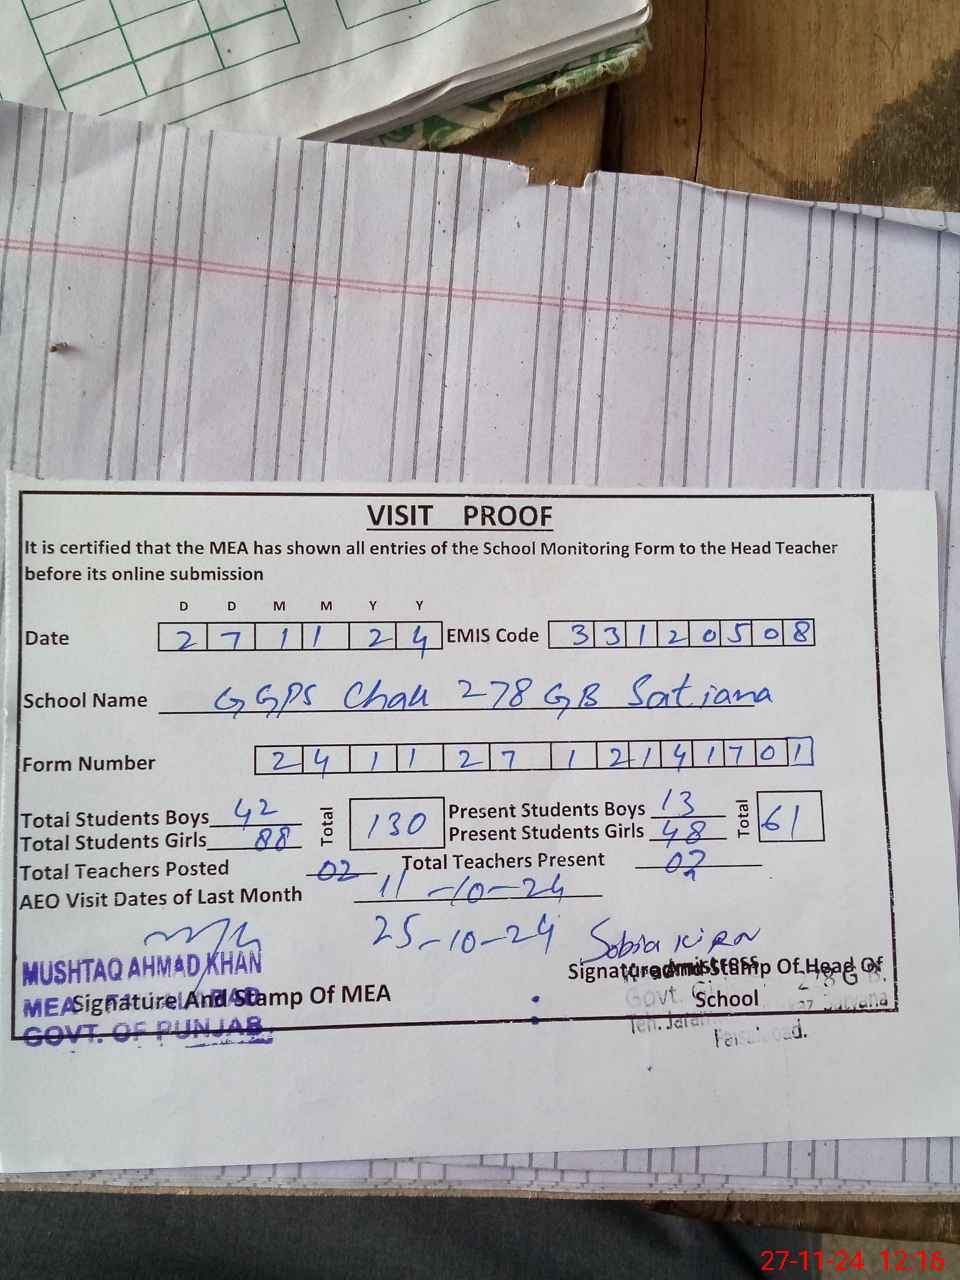 VISIT PROOF
It is certified that the MEA has shown all entries of the School Monitoring Form to the Head Teacher
before its online submission
D D M M Y Y
Date 2 7 1 1 2 4 EMIS Code 3 3 1 2 0 5 0 8
School Name GGPS Chak 278 GB Satiana
Form Number 2 4 1 1 2 7 1 2 1 4 1 7 0 1
Total Students Boys 42 Total 130 Present Students Boys 13 Total 61
Total Students Girls 88 Present Students Girls 48
Total Teachers Posted 02 Total Teachers Present 02
AEO Visit Dates of Last Month 11-10-24
25-10-24 Sobia Kiran
MUSHTAQ AHMAD KHAN
MEA
GOVT. OF PUNJAB
Signature And Stamp Of MEA
Signature And Stamp Of Head Of
School
Govt. 278 G B.
Teh.
27-11-24 12:16